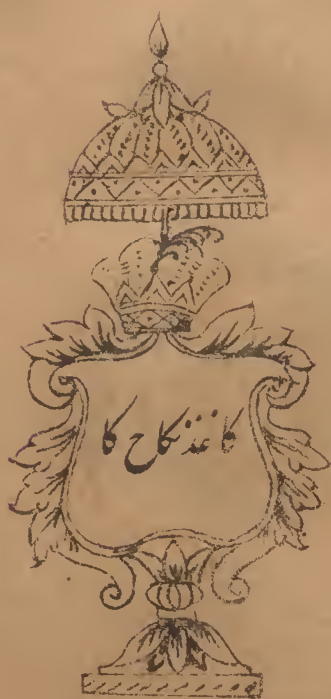 کاغذ نکاح کا